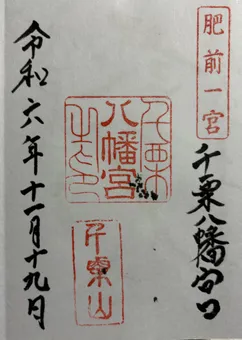 肥前一宮
千栗八幡宮
千栗
八幡宮
千栗山
令和六年十一月十九日